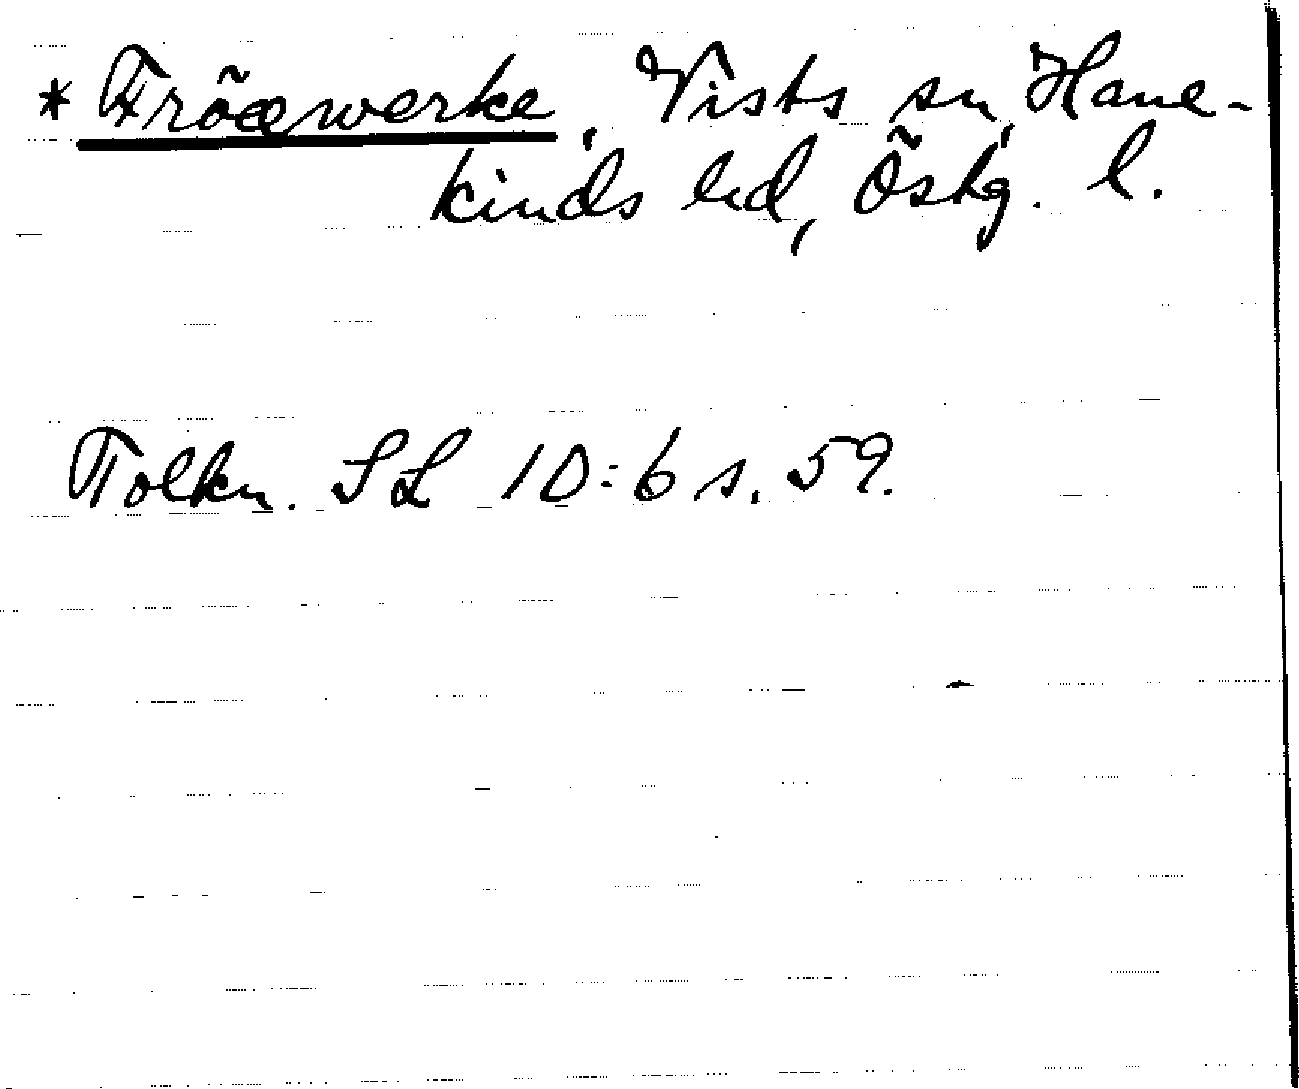 * Fröæwerke, Vists sn, Hane-
kinds hd, Östg. l.
Tolkn. SL 1D:6 s. 59.